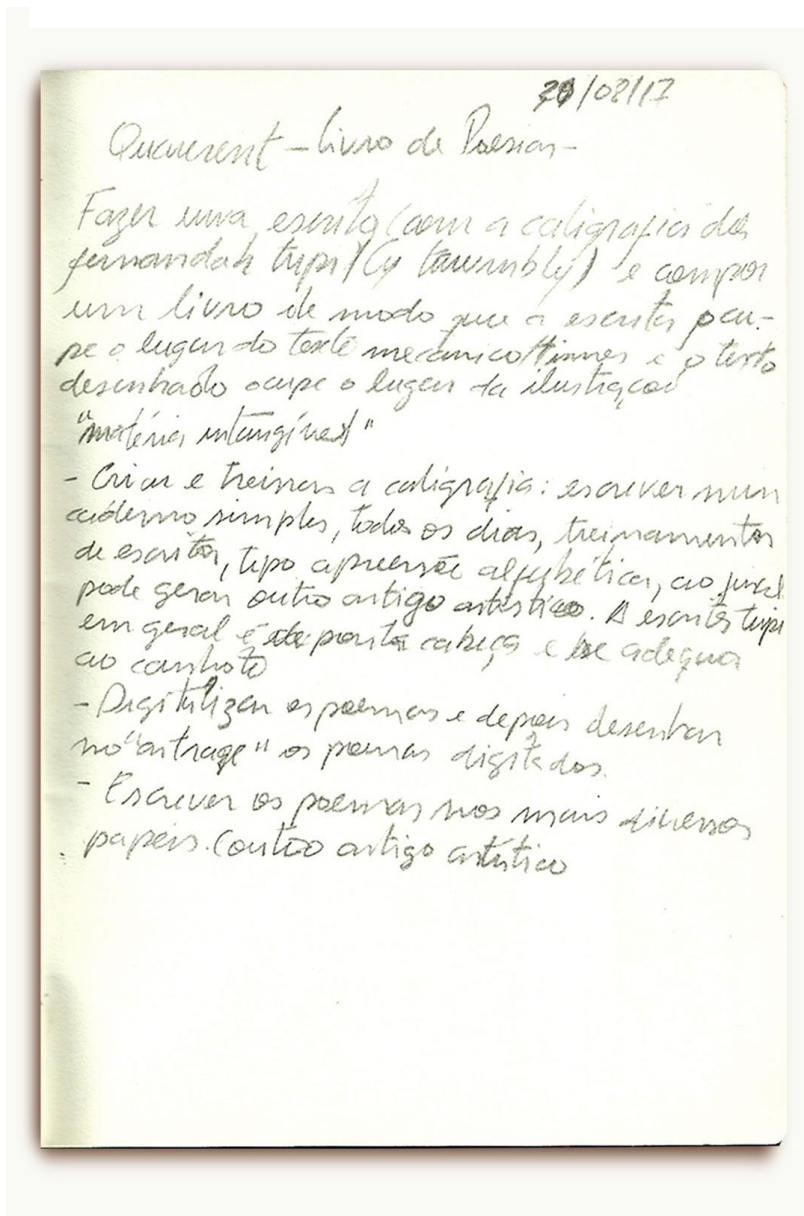 /08/17
- livro de Poesias -
Fazer uma escrita (com a caligrafia da
fernandah tupi) (Cy twombly) e compor
um livro de modo que a escrita ocu-
pe o lugar do texto mecânico e o texto
desenhado ocupe o lugar da ilustração
"matéria intangível"
- Criar e treinar a caligrafia: escrever num
caderno simples, todos os dias, treinamentos
de escrita, tipo apreensão alfabética, ao final
pode gerar outro artigo artístico. A escrita tupi
em geral é de ponta cabeça e se adequa
ao canhoto
- Digitalizar os poemas e depois desenhar
no "artrage" os poemas digitados.
- Escrever os poemas nos mais diversos
papéis. (outro artigo artístico